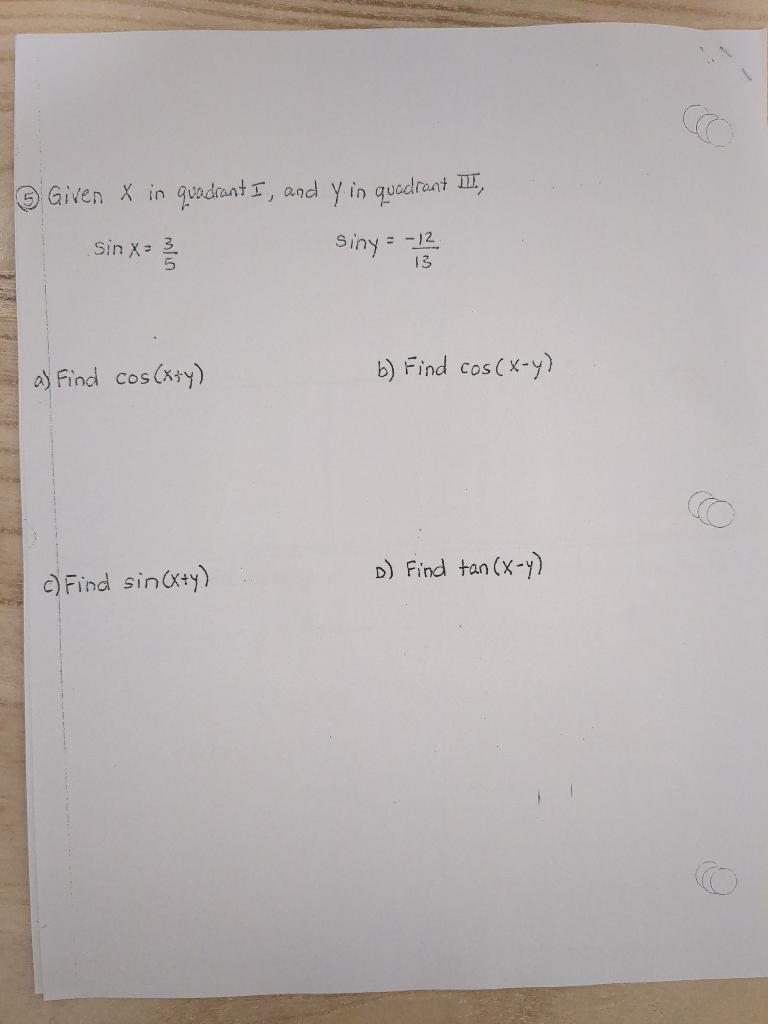 ⑤ Given X in quadrant I, and y in quadrant III,
sin x = 3/5 siny = -12/13
a) Find cos(x+y) b) Find cos(x-y)
c) Find sin(x+y) D) Find tan(x-y)